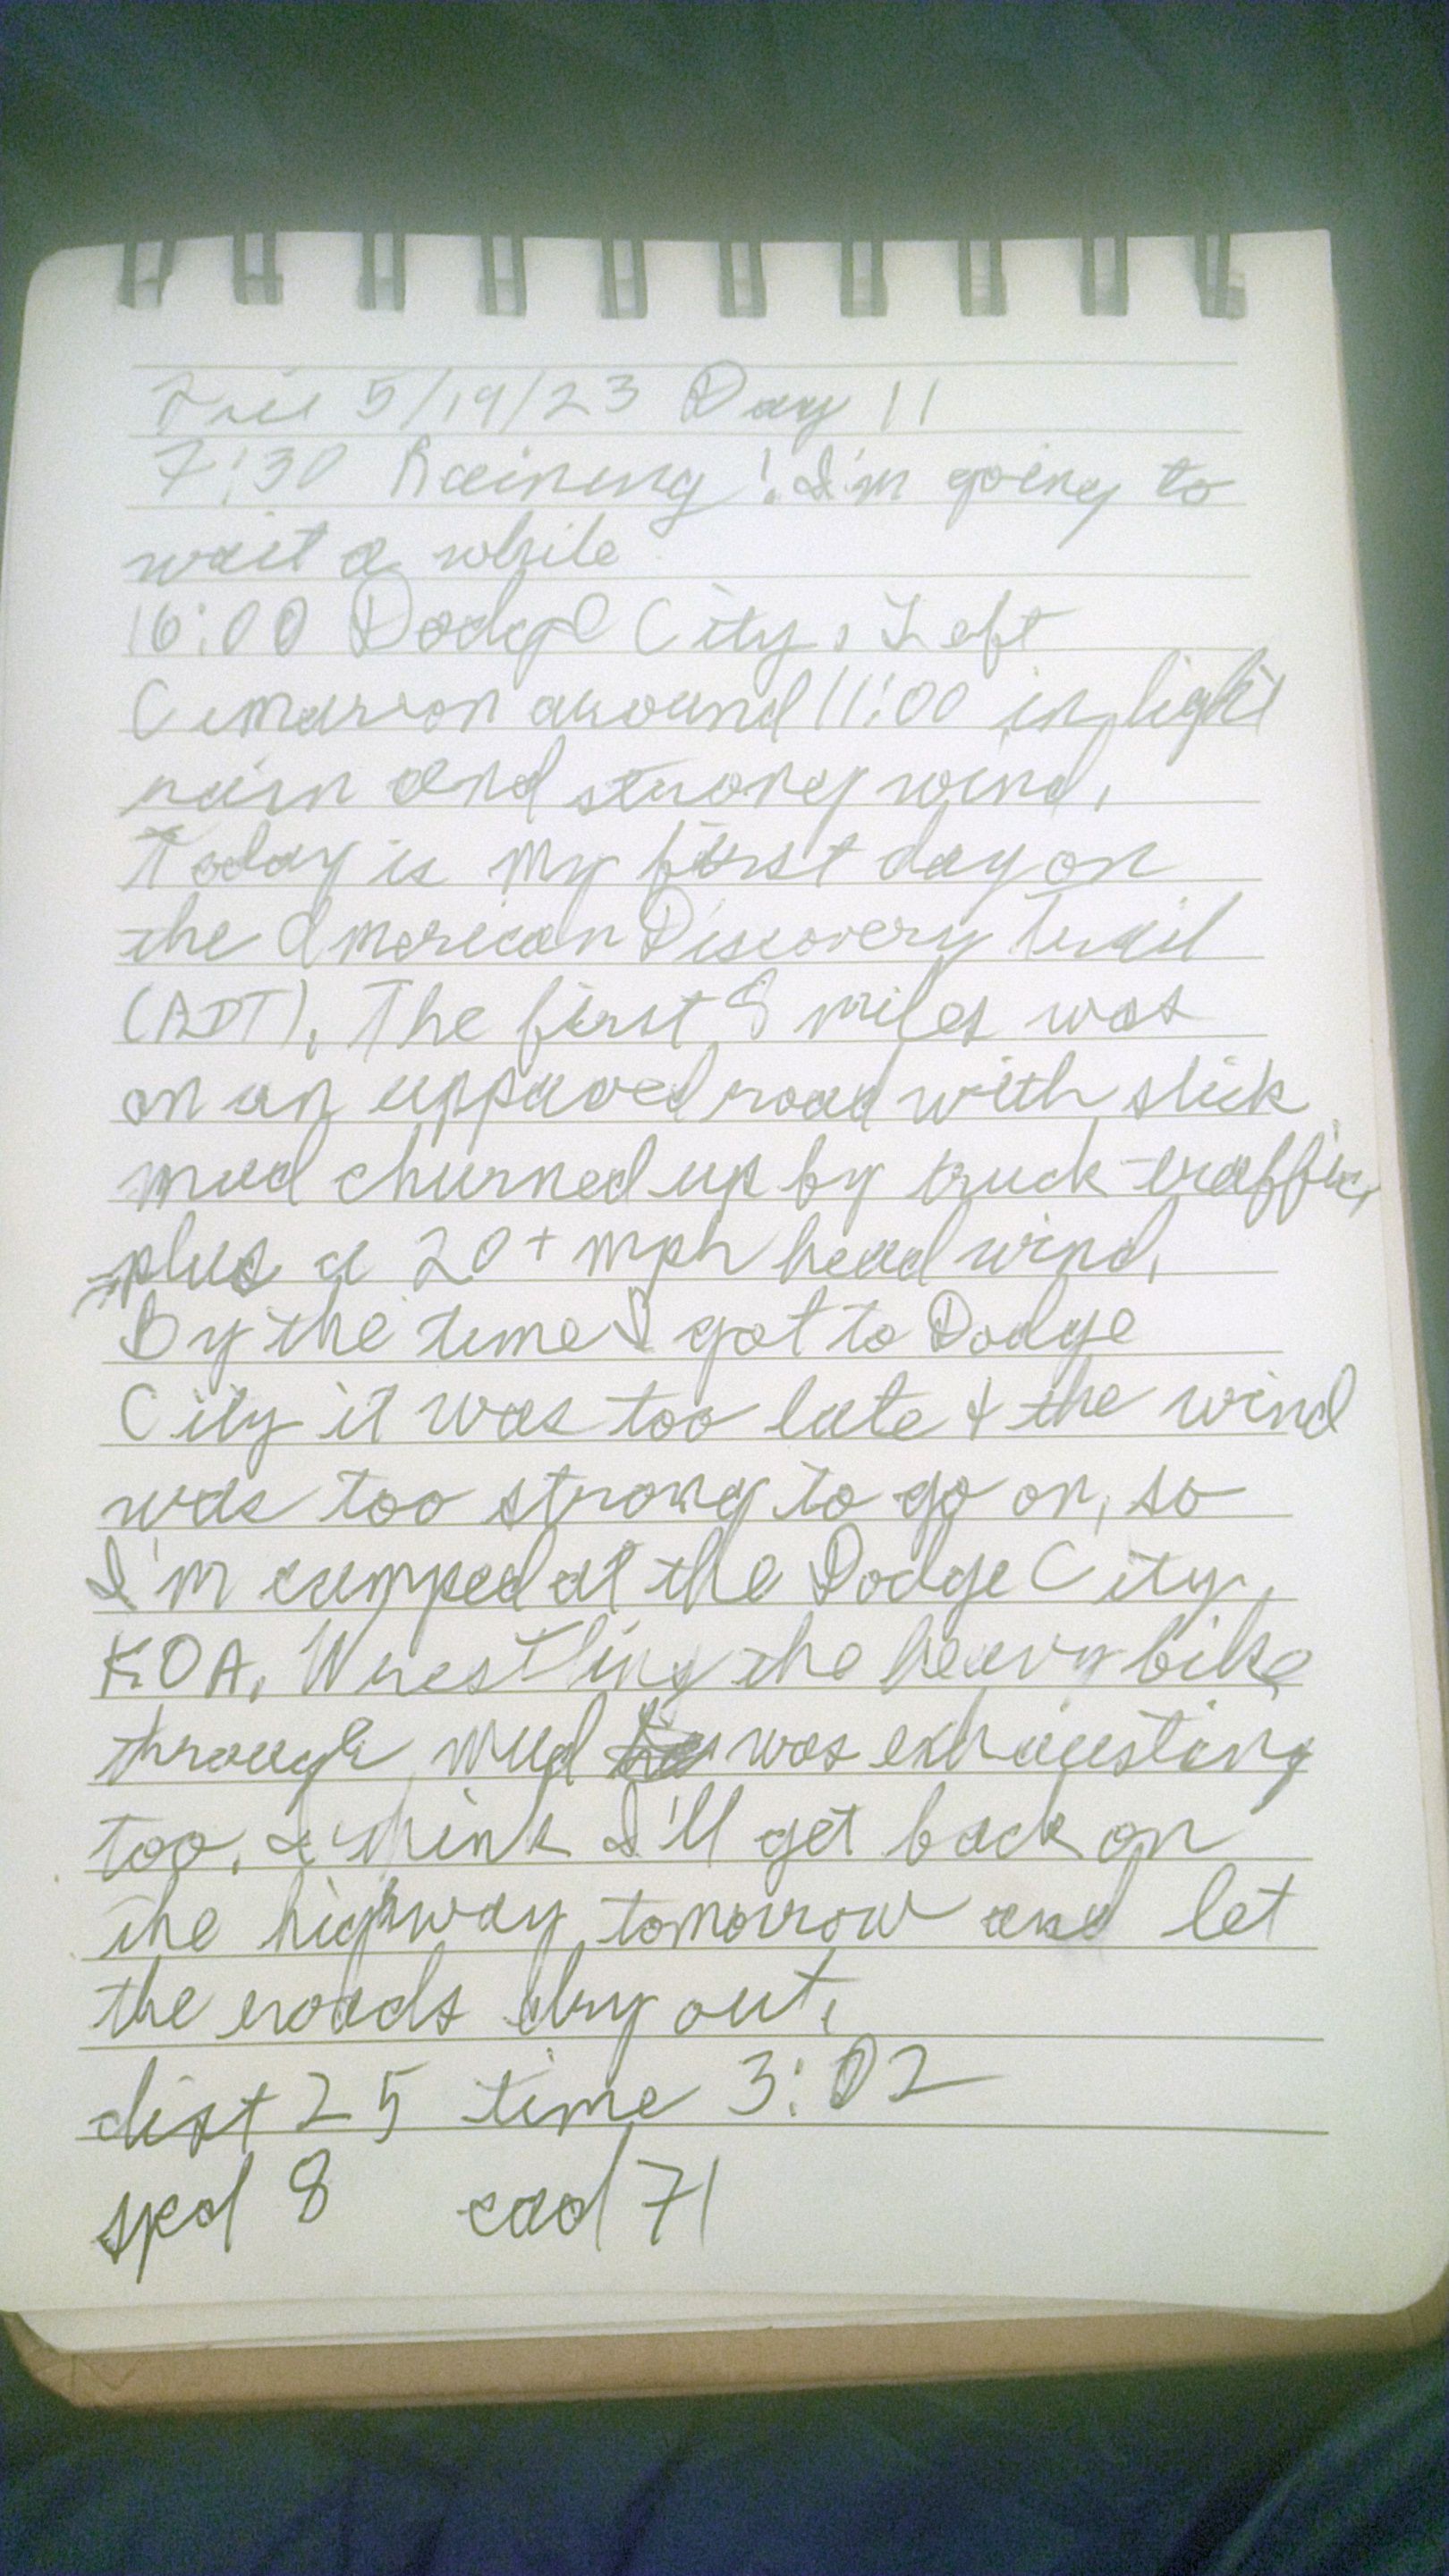 Fri 5/19/23 Day 11
7:30 Raining! I'm going to
wait a while
16:00 Dodge City. Left
Cimarron around 11:00 in light
rain and strong wind.
Today is my first day on
the American Discovery Trail
(ADT). The first 8 miles was
on an uppaved road with slick
mud churned up by truck traffic,
plus a 20+ mph head wind.
By the time I got to Dodge
City it was too late & the wind
was too strong to go on, so
I'm camped at the Dodge City
KOA. Wrestling the heavy bike
through mud was exhausting
too. I think I'll get back on
the highway tomorrow and let
the roads dry out.
dist 25 time 3:02
spd 8 cad 71